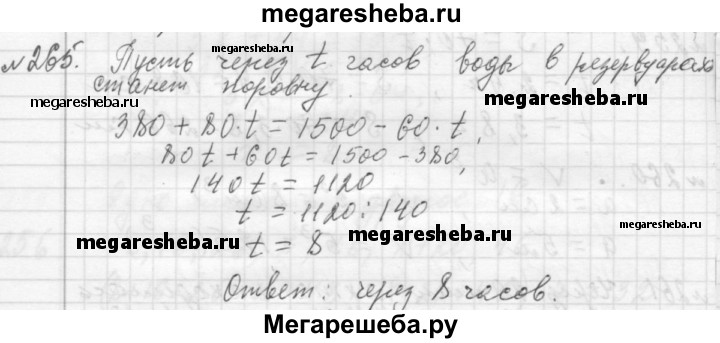 megaresheba.ru
№ 265. Пусть через t часов воды в резервуарах
megaresheba.ru
станет поровну.
megaresheba.ru
megaresheba.ru
380 + 80·t = 1500 - 60·t,
80t + 60t = 1500 - 380,
140t = 1120
t = 1120 : 140
megaresheba.ru
t = 8
megaresheba.ru
Ответ: через 8 часов.
Мегарешеба.ру